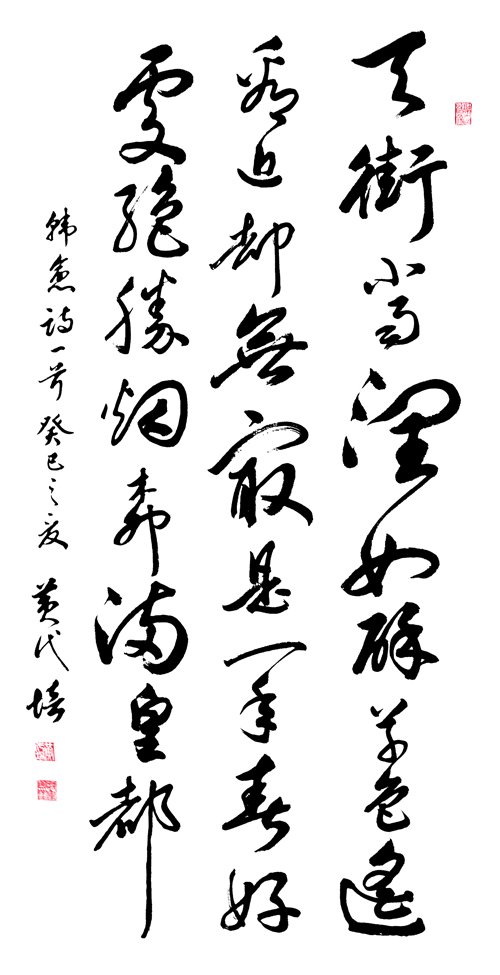 天街小雨潤如酥草色遙
看近却無最是一年春好
處絕勝烟柳滿皇都
韓愈詩一首癸巳之夏 黃代培